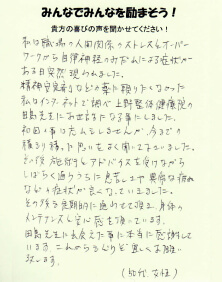 みんなでみんなを励まそう！
貴方の喜びの声を聞かせてください！
私は職場の人間関係のストレスとオーバー
ワークから自律神経のみだれによる症状が
ある日突然現われました。
精神安定剤などの薬に頼りたくなかった
私はインターネットで調べ上野整体健康院の
田島先生にお世話になる事にしました。
初回の事は忘れもしませんが、今までの
積るり積った思いをよく聞いて下さいました。
その後施術やアドバイスを受けながら
しばらく通ううちに息苦しさや異常な痛み
などの症状が良くなっていきました。
その後も定期的に通わせて頂き、身体の
メンテナンスもして心強く頂いています。
田島先生に出会えた事に本当に感謝して
います。これからもどうぞ宜しくお願い
致します。
（50代 女性）